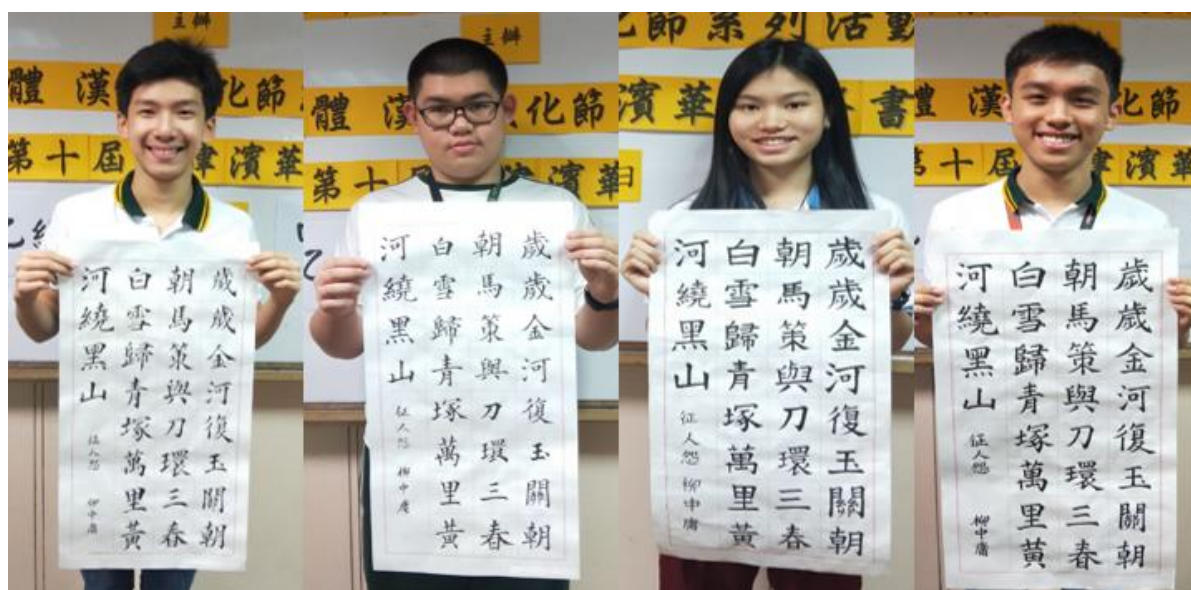 主辦
體 漢 化節
第十屆 律濱華
歲歲金河復玉關朝
朝馬策與刀環三春
白雪歸青塚萬里黃
河繞黑山 征人怨 柳中庸
主辦
體 漢 化節
第十 濱華
歲歲金河復玉關朝
朝馬策與刀環三春
白雪歸青塚萬里黃
河繞黑山 征人怨 柳中庸
化節系列活動
濱華 書
歲歲金河復玉關朝
朝馬策與刀環三春
白雪歸青塚萬里黃
河繞黑山 征人怨 柳中庸
漢 化節
十屆 律濱華
歲歲金河復玉關朝
朝馬策與刀環三春
白雪歸青塚萬里黃
河繞黑山 征人怨 柳中庸